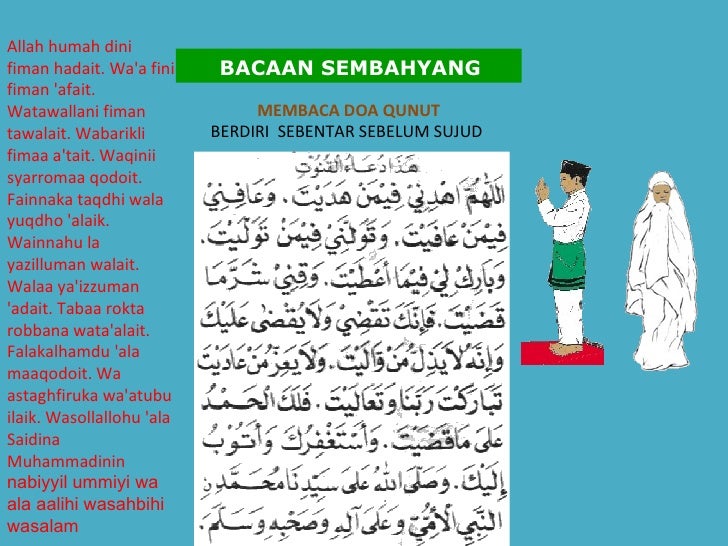 Allah humah dini
fiman hadait. Wa'a fini
fiman 'afait.
Watawallani fiman
tawalait. Wabarikli
fimaa a'tait. Waqinii
syarromaa qodoit.
Fainnaka taqdhi wala
yuqdho 'alaik.
Wainnahu la
yazilluman walait.
Walaa ya'izzuman
'adait. Tabaa rokta
robbana wata'alait.
Falakalhamdu 'ala
maaqodoit. Wa
astaghfiruka wa'atubu
ilaik. Wasollallohu 'ala
Saidina
Muhammadinin
nabiyyil ummiyi wa
ala aalihi wasahbihi
wasalam
BACAAN SEMBAHYANG
MEMBACA DOA QUNUT
BERDIRI SEBENTAR SEBELUM SUJUD
هَذَا دُعَاءُ الْقُنُوْتِ
اَللّٰهُمَّ اهْدِنِيْ فِيْمَنْ هَدَيْتَ، وَعَافِنِيْ
فِيْمَنْ عَافَيْتَ، وَتَوَلَّنِيْ فِيْمَنْ تَوَلَّيْتَ،
وَبَارِكْ لِيْ فِيْمَا أَعْطَيْتَ، وَقِنِيْ شَرَّمَا
قَضَيْتَ، فَإِنَّكَ تَقْضِيْ وَلَا يُقْضَى عَلَيْكَ
وَإِنَّهُ لَا يَذِلُّ مَنْ وَّالَيْتَ، وَلَا يَعِزُّ مَنْ عَادَيْتَ
تَبَارَكْتَ رَبَّنَا وَتَعَالَيْتَ، فَلَكَ الْحَمْدُ
عَلَى مَا قَضَيْتَ، وَأَسْتَغْفِرُكَ وَأَتُوْبُ
إِلَيْكَ، وَصَلَّى اللّٰهُ عَلَى سَيِّدِنَا مُحَمَّدٍ
النَّبِيِّ الْأُمِّيِّ وَعَلَى آلِهِ وَصَحْبِهِ وَسَلَّمَ،